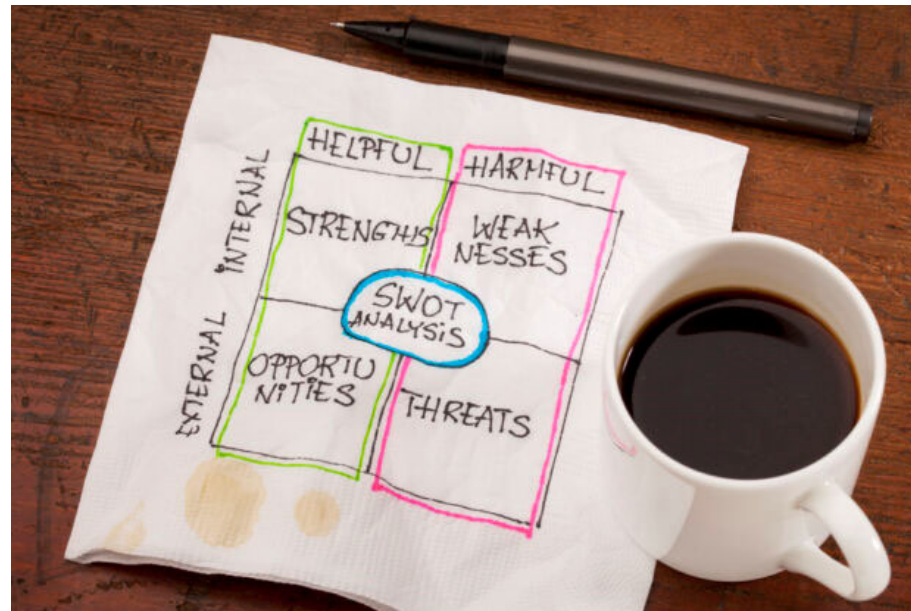 HELPFUL
HARMFUL
INTERNAL
STRENGTHS
WEAK
NESSES
SWOT
ANALYSiS
EXTERNAL
OPPORTU
NiTiES
THREATS